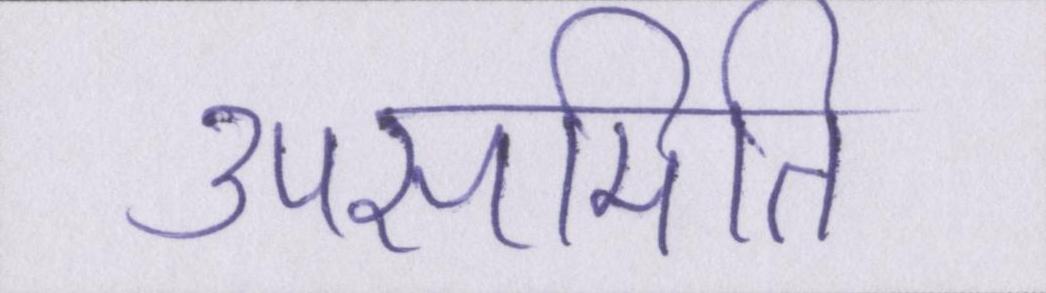 उपसमिति